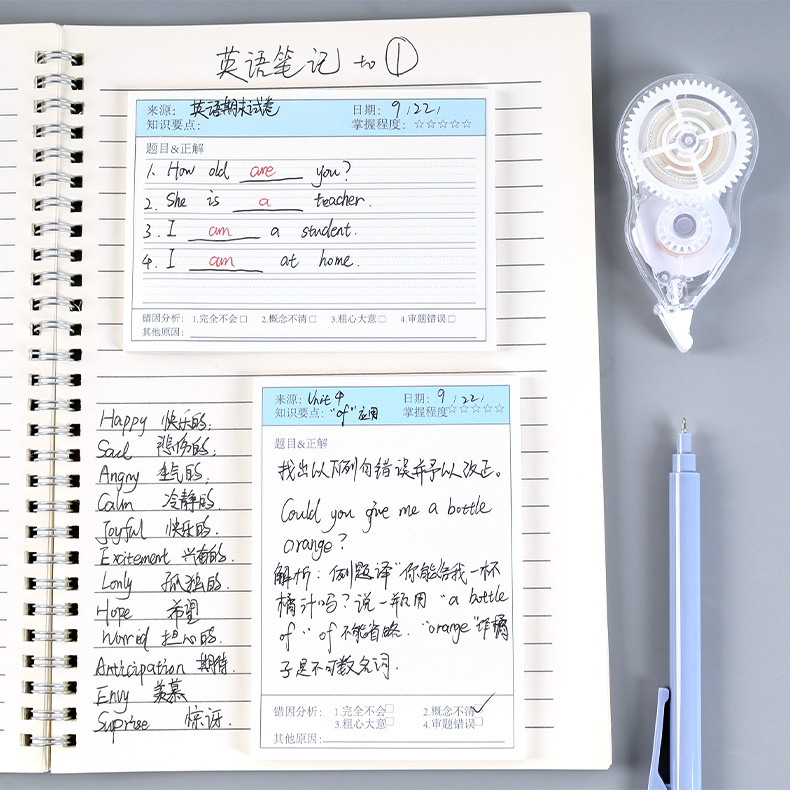 英语笔记 to ①
来源: 英语期末试卷 日期: 9 / 22 /
知识要点: 掌握程度: ☆☆☆☆☆
题目&正解
1. How old are you?
2. She is a teacher.
3. I am a student.
4. I am at home.
错因分析: 1.完全不会□ 2.概念不清□ 3.粗心大意□ 4.审题错误□
其他原因:
Happy 快乐的;
Sad 悲伤的;
Angry 生气的
Calm 冷静的
Joyful 快乐的.
Excitement 兴奋的.
Lonly 孤独的
Hope 希望
Worried 担心的.
Anticipation 期待.
Envy 羡慕
Suprise 惊讶.
来源: Unit 4 日期: 9 / 22 /
知识要点: "of" 应用 掌握程度☆☆☆☆☆
题目&正解
找出以下例句错误并予以改正。
Could you give me a bottle
orange?
解析: 例题译"你能给我一杯
橘汁吗? 说一瓶用 "a bottle
of" of 不能省略. "orange"作橘
子是不可数名词.
错因分析: 1.完全不会□ 2.概念不清☑
3.粗心大意□ 4.审题错误□
其他原因: